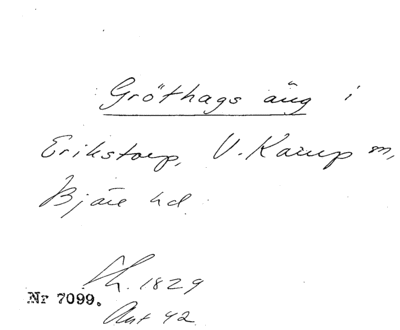 Gröthags äng i
Erikstorp, V. Karup sn,
Bjäre hd.
Sk. 1829
Nr 7099.
Ant 42